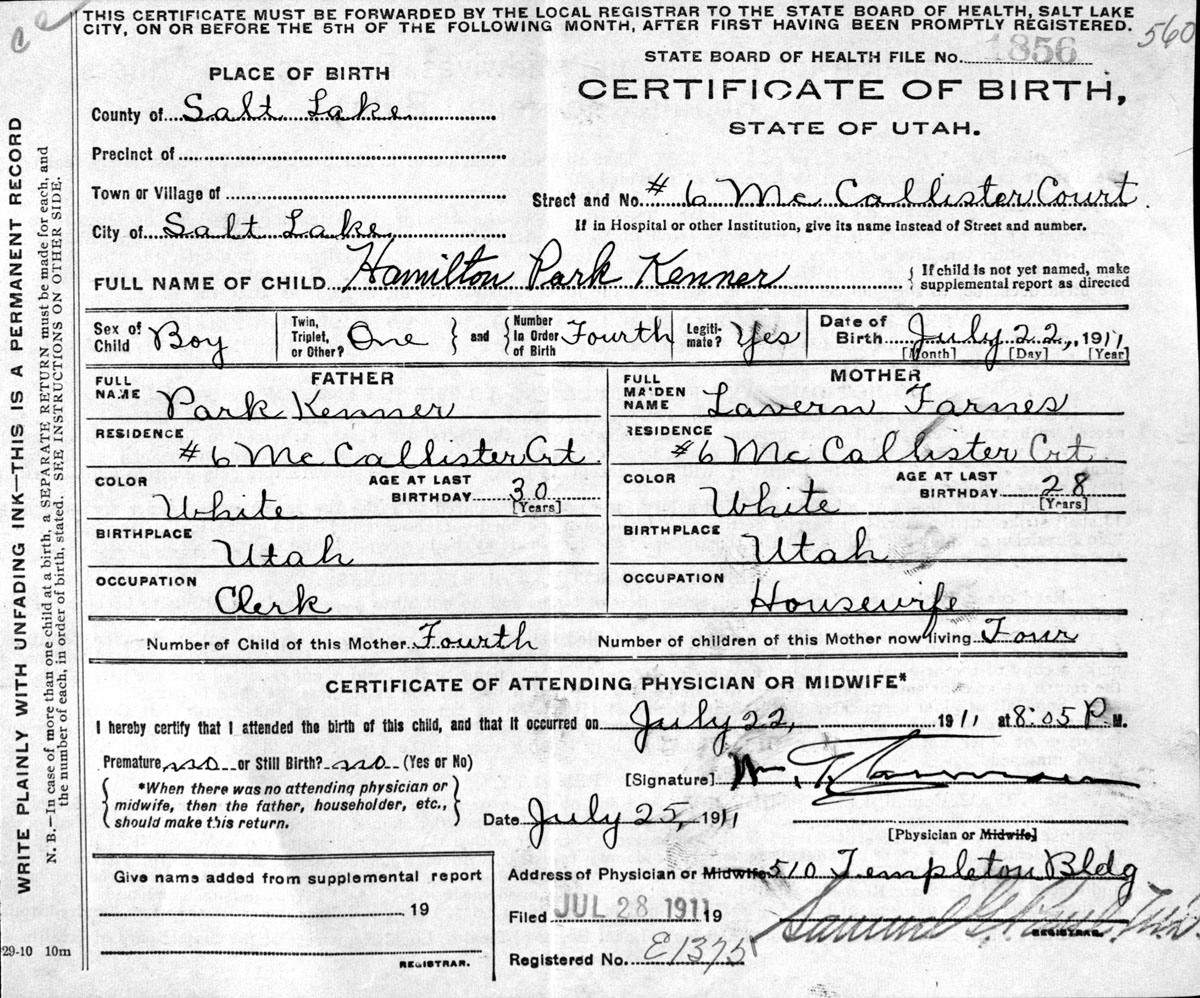 THIS CERTIFICATE MUST BE FORWARDED BY THE LOCAL REGISTRAR TO THE STATE BOARD OF HEALTH, SALT LAKE
CITY, ON OR BEFORE THE 5TH OF THE FOLLOWING MONTH, AFTER FIRST HAVING BEEN PROMPTLY REGISTERED.
560
WRITE PLAINLY WITH UNFADING INK—THIS IS A PERMANENT RECORD
N. B.—In case of more than one child at a birth, a SEPARATE RETURN must be made for each, and
the number of each, in order of birth, stated. SEE INSTRUCTIONS ON OTHER SIDE.
STATE BOARD OF HEALTH FILE No. 1856
PLACE OF BIRTH
CERTIFICATE OF BIRTH,
STATE OF UTAH.
County of Salt Lake
Precinct of
Town or Village of
Street and No. #6 Mc Callister Court
City of Salt Lake
If in Hospital or other Institution, give its name instead of Street and number.
FULL NAME OF CHILD Hamilton Park Kenner
{If child is not yet named, make
supplemental report as directed
Sex of Child Boy
Twin, Triplet, or Other? One } and {
Number In Order of Birth Fourth
Legitimate? Yes
Date of Birth July 22, 1911
[Month] [Day] [Year]
FATHER
FULL NAME Park Kenner
RESIDENCE #6 Mc Callister Crt
COLOR White AGE AT LAST BIRTHDAY 30 [Years]
BIRTHPLACE Utah
OCCUPATION Clerk
MOTHER
FULL MAIDEN NAME Lavern Farnes
RESIDENCE #6 Mc Callister Crt
COLOR White AGE AT LAST BIRTHDAY 28 [Years]
BIRTHPLACE Utah
OCCUPATION Housewife
Number of Child of this Mother Fourth Number of children of this Mother now living Four
CERTIFICATE OF ATTENDING PHYSICIAN OR MIDWIFE*
I hereby certify that I attended the birth of this child, and that it occurred on July 22, 1911 at 8:05 P M.
Premature no or Still Birth? no (Yes or No)
{*When there was no attending physician or
midwife, then the father, householder, etc.,
should make this return.}
[Signature] Wm. T.
Date July 25, 1911
[Physician or Midwife]
Address of Physician or Midwife 510 Templeton Bldg
Give name added from supplemental report
19
REGISTRAR.
Filed JUL 28 1911 19
Samuel G. Paul
REGISTRAR.
Registered No. E1375
29-10 10m